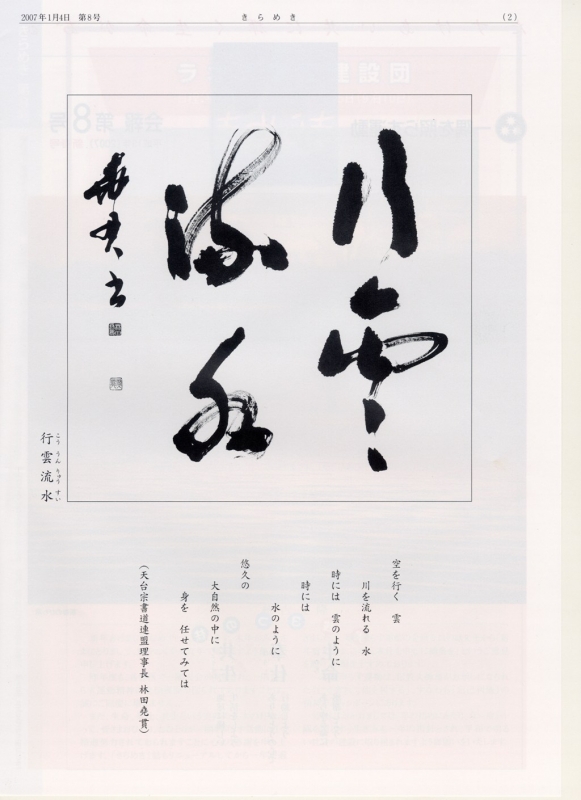 2007年1月4日 第8号
きらめき
(2)
行雲
流水
書
行雲流水
こううんりゅうすい
空を行く 雲
川を流れる 水
時には 雲のように
時には
水のように
悠久の
大自然の中に
身を 任せてみては
(天台宗書道連盟理事長 林田堯貫)